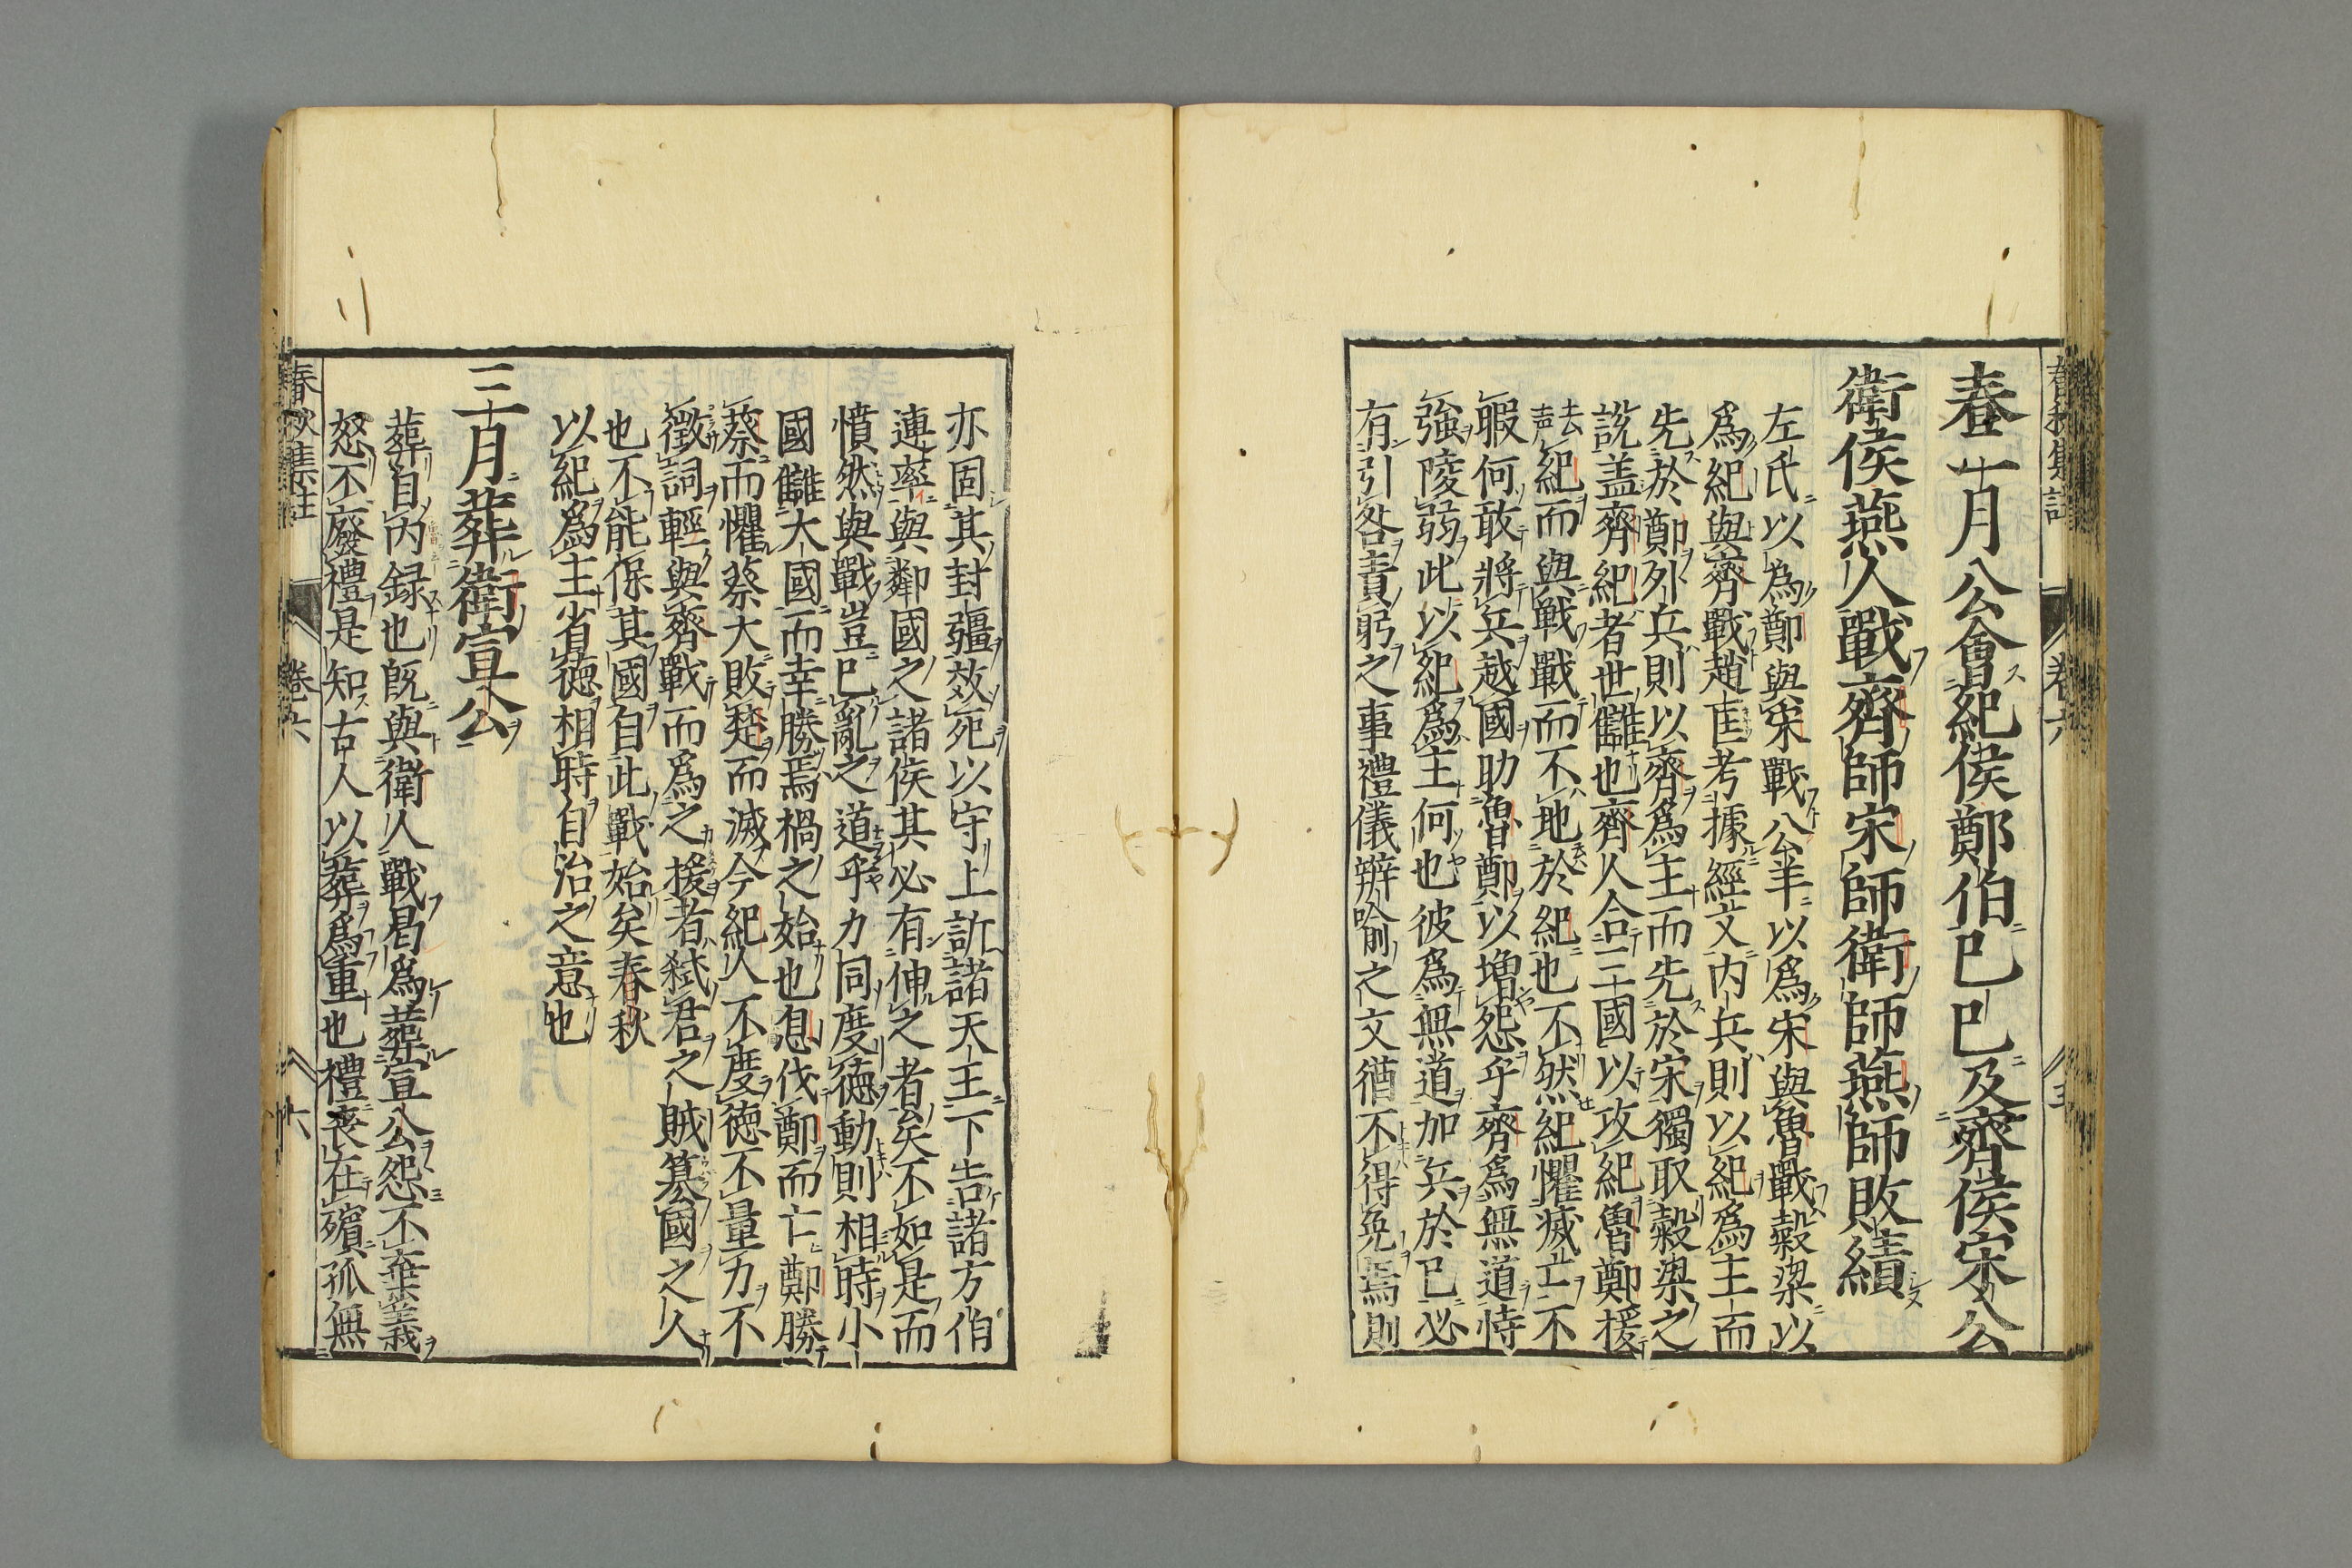 春二月公會紀侯鄭伯己巳及齊侯宋公
衛侯燕人戰齊師宋師衛師燕師敗績
左氏以為鄭與宋戰公羊以爲宋與魯戰穀梁以
爲紀與齊戰趙匡考據經文内兵則以紀爲主而
先於鄭外兵則以齊爲主而先於宋獨取穀梁之
說盖齊紀者世讎也齊人合三國以攻紀魯鄭援
去声紀而與戰戰而不地於紀也不然紀懼滅亡不
暇何敢將兵越國助魯鄭以増怨乎齊爲無道恃
強陵弱此以紀爲主何也彼爲無道加兵於己必
有引咎責躬之事禮儀辨喻之文猶不得免焉則
春秋集註
卷六
亦固其封疆效死以守上訴諸天王下告諸方伯
連率與鄰國之諸侯其必有伸之者矣不如是而
憤然與戰豈已亂之道乎力同度徳動則相時小
國讎大國而幸勝焉禍之始也息伐鄭而亡鄭勝
蔡而懼蔡大敗楚而滅今紀人不度徳不量力不
徵詞輕與齊戰而爲之援者弒君之賊簒國之人
也不能保其國自此戰始矣春秋
以紀爲主省徳相時自治之意也
三月葬衛宣公
葬自内録也既與衛人戰曷爲葬宣公怨不棄義
怒不廢禮是知古人以葬爲重也禮喪在殯孤無
春秋集註
卷六
六